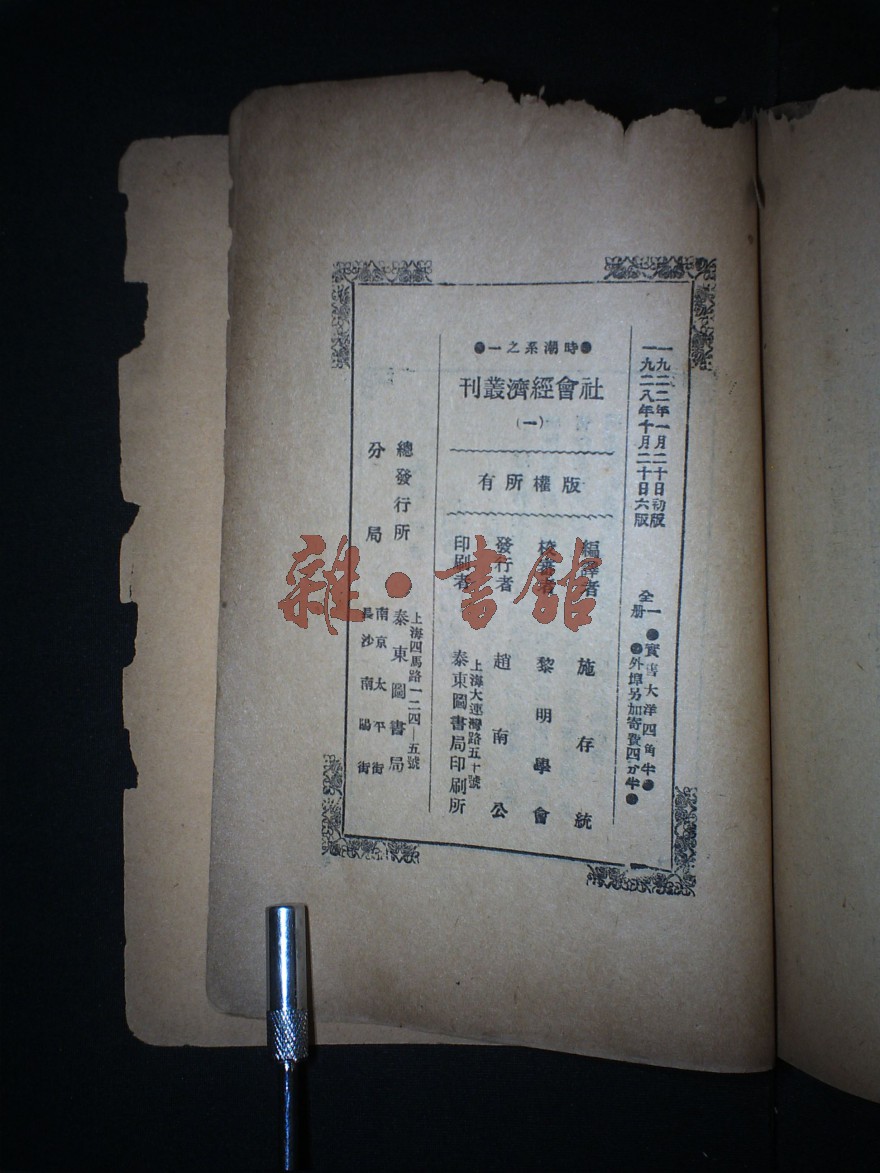 一九二二年一月二十日初版
一九二八年千月二十日六版
全一册
●實售大洋四角半●
●外埠另加寄費四分半●
●時潮系之一●
社會經濟叢刊
(一)
版權所有
編譯者 施存統
校審者 黎明學會
發行者 趙南公
印刷者 上海大連灣路五十號
泰東圖書局印刷所
總發行所 上海四馬路一二四—五號
泰東圖書局
分局 南京太平街
長沙南陽街
雜·書館